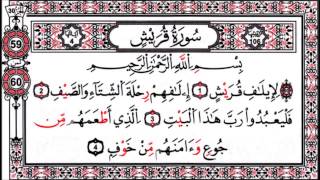 سُورَةُ قُرَيْشٍ
بِسْمِ اللَّهِ الرَّحْمَٰنِ الرَّحِيمِ
لِإِيلَافِ قُرَيْشٍ 1 إِلَافِهِمْ رِحْلَةَ الشِّتَاءِ وَالصَّيْفِ 2
فَلْيَعْبُدُوا رَبَّ هَٰذَا الْبَيْتِ 3 الَّذِي أَطْعَمَهُم مِّن
جُوعٍ وَءَامَنَهُم مِّنْ خَوْفٍ 4
59
60
106